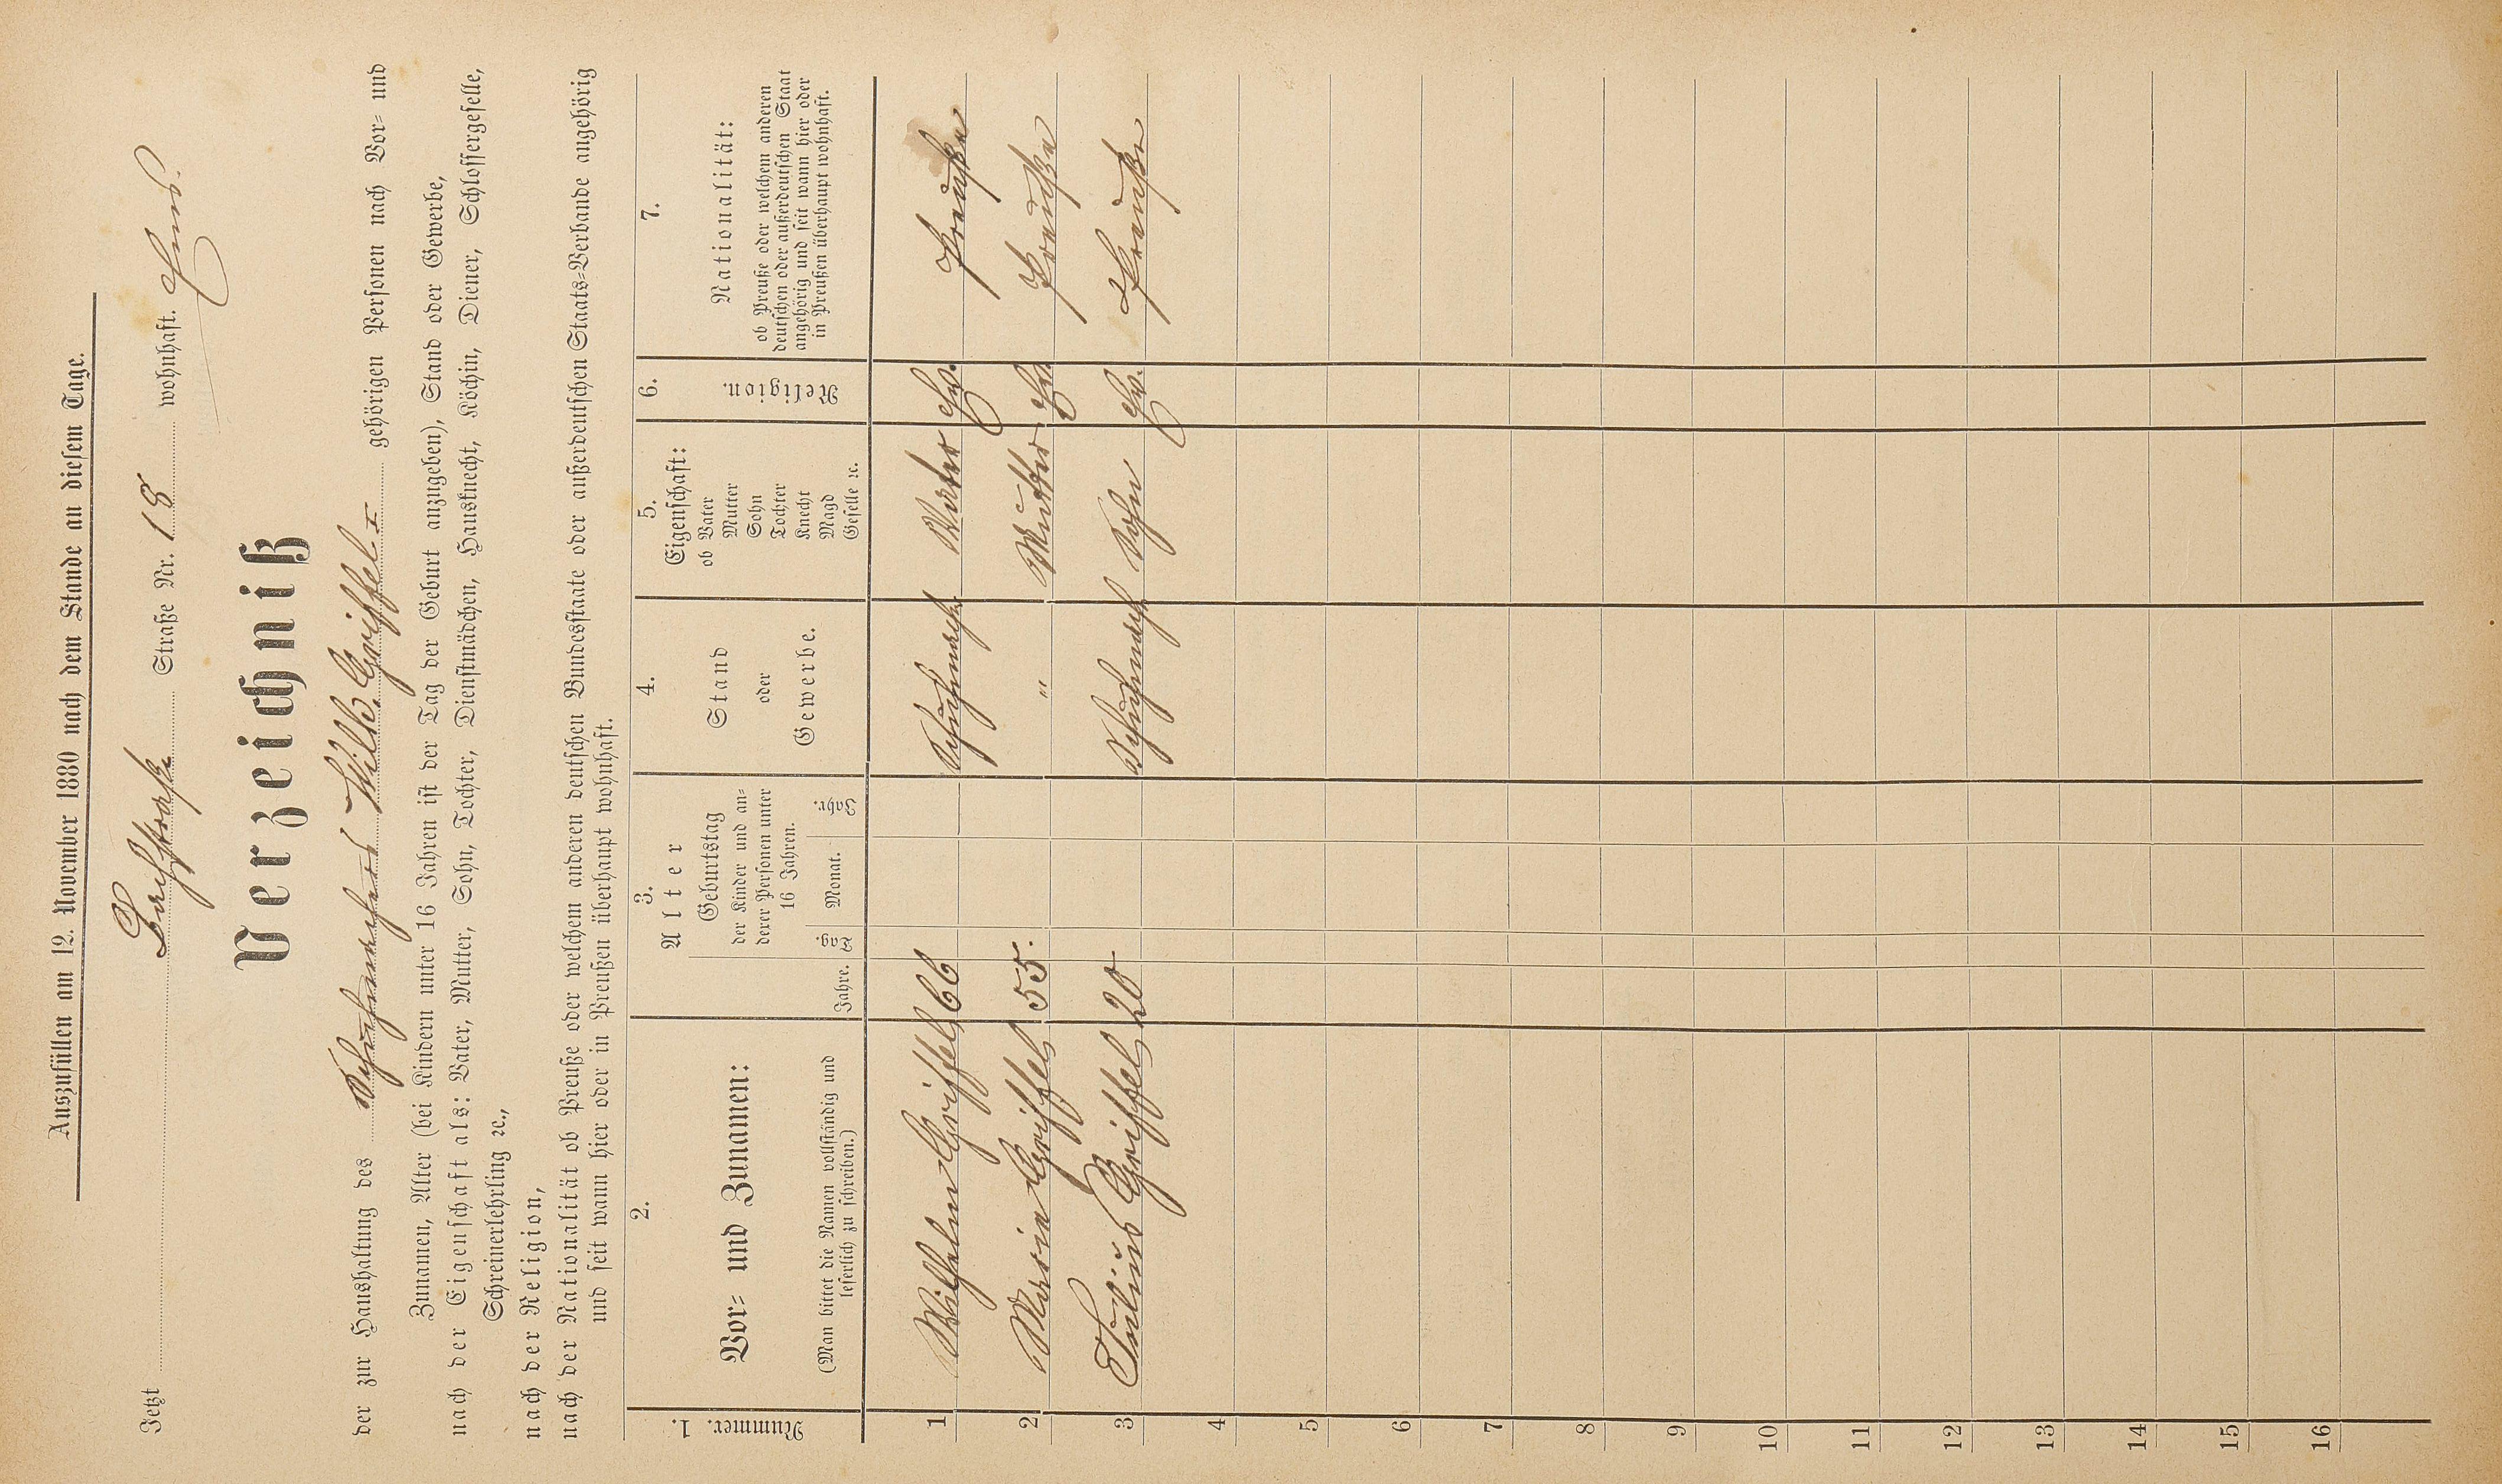 Auszufüllen am 12. November 1880 nach dem Stande an diesem Tage.
Jetzt Bachstraße Straße Nr. 18 wohnhaft.
Verzeichniß
der zur Haushaltung des Schuhmacher Wilh. Griffel gehörigen Personen nach Vor- und
Zunamen, Alter (bei Kindern unter 16 Jahren ist der Tag der Geburt anzugeben), Stand oder Gewerbe,
nach der Eigenschaft als: Vater, Mutter, Sohn, Tochter, Dienstmädchen, Hausknecht, Köchin, Diener, Schlossergeselle,
Schreinerlehrling ꝛc.,
nach der Religion,
nach der Nationalität ob Preuße oder welchem anderen deutschen Bundesstaate oder außerdeutschen Staats-Verbande angehörig
und seit wann hier oder in Preußen überhaupt wohnhaft.
1. Nummer.
2. Vor- und Zunamen:
(Man bittet die Namen vollständig und
leserlich zu schreiben.)
3. Alter
Jahre.
Geburtstag
der Kinder und an-
derer Personen unter
16 Jahren.
Tag. Monat. Jahr.
4. Stand
oder
Gewerbe.
5. Eigenschaft:
ob Vater
Mutter
Sohn
Tochter
Knecht
Magd
Geselle ꝛc.
6. Religion.
7. Nationalität:
ob Preuße oder welchem anderen
deutschen oder außerdeutschen Staat
angehörig und seit wann hier oder
in Preußen überhaupt wohnhaft.
1 Wilhelm Griffel 66 Schuhmach Vater Ev. Preuße
2 Maria Griffel 55. " Mutter Ev. Preuße
3 Julius Griffel 20 Schuhmach Sohn Ev. Preuße
4
5
6
7
8
9
10
11
12
13
14
15
16